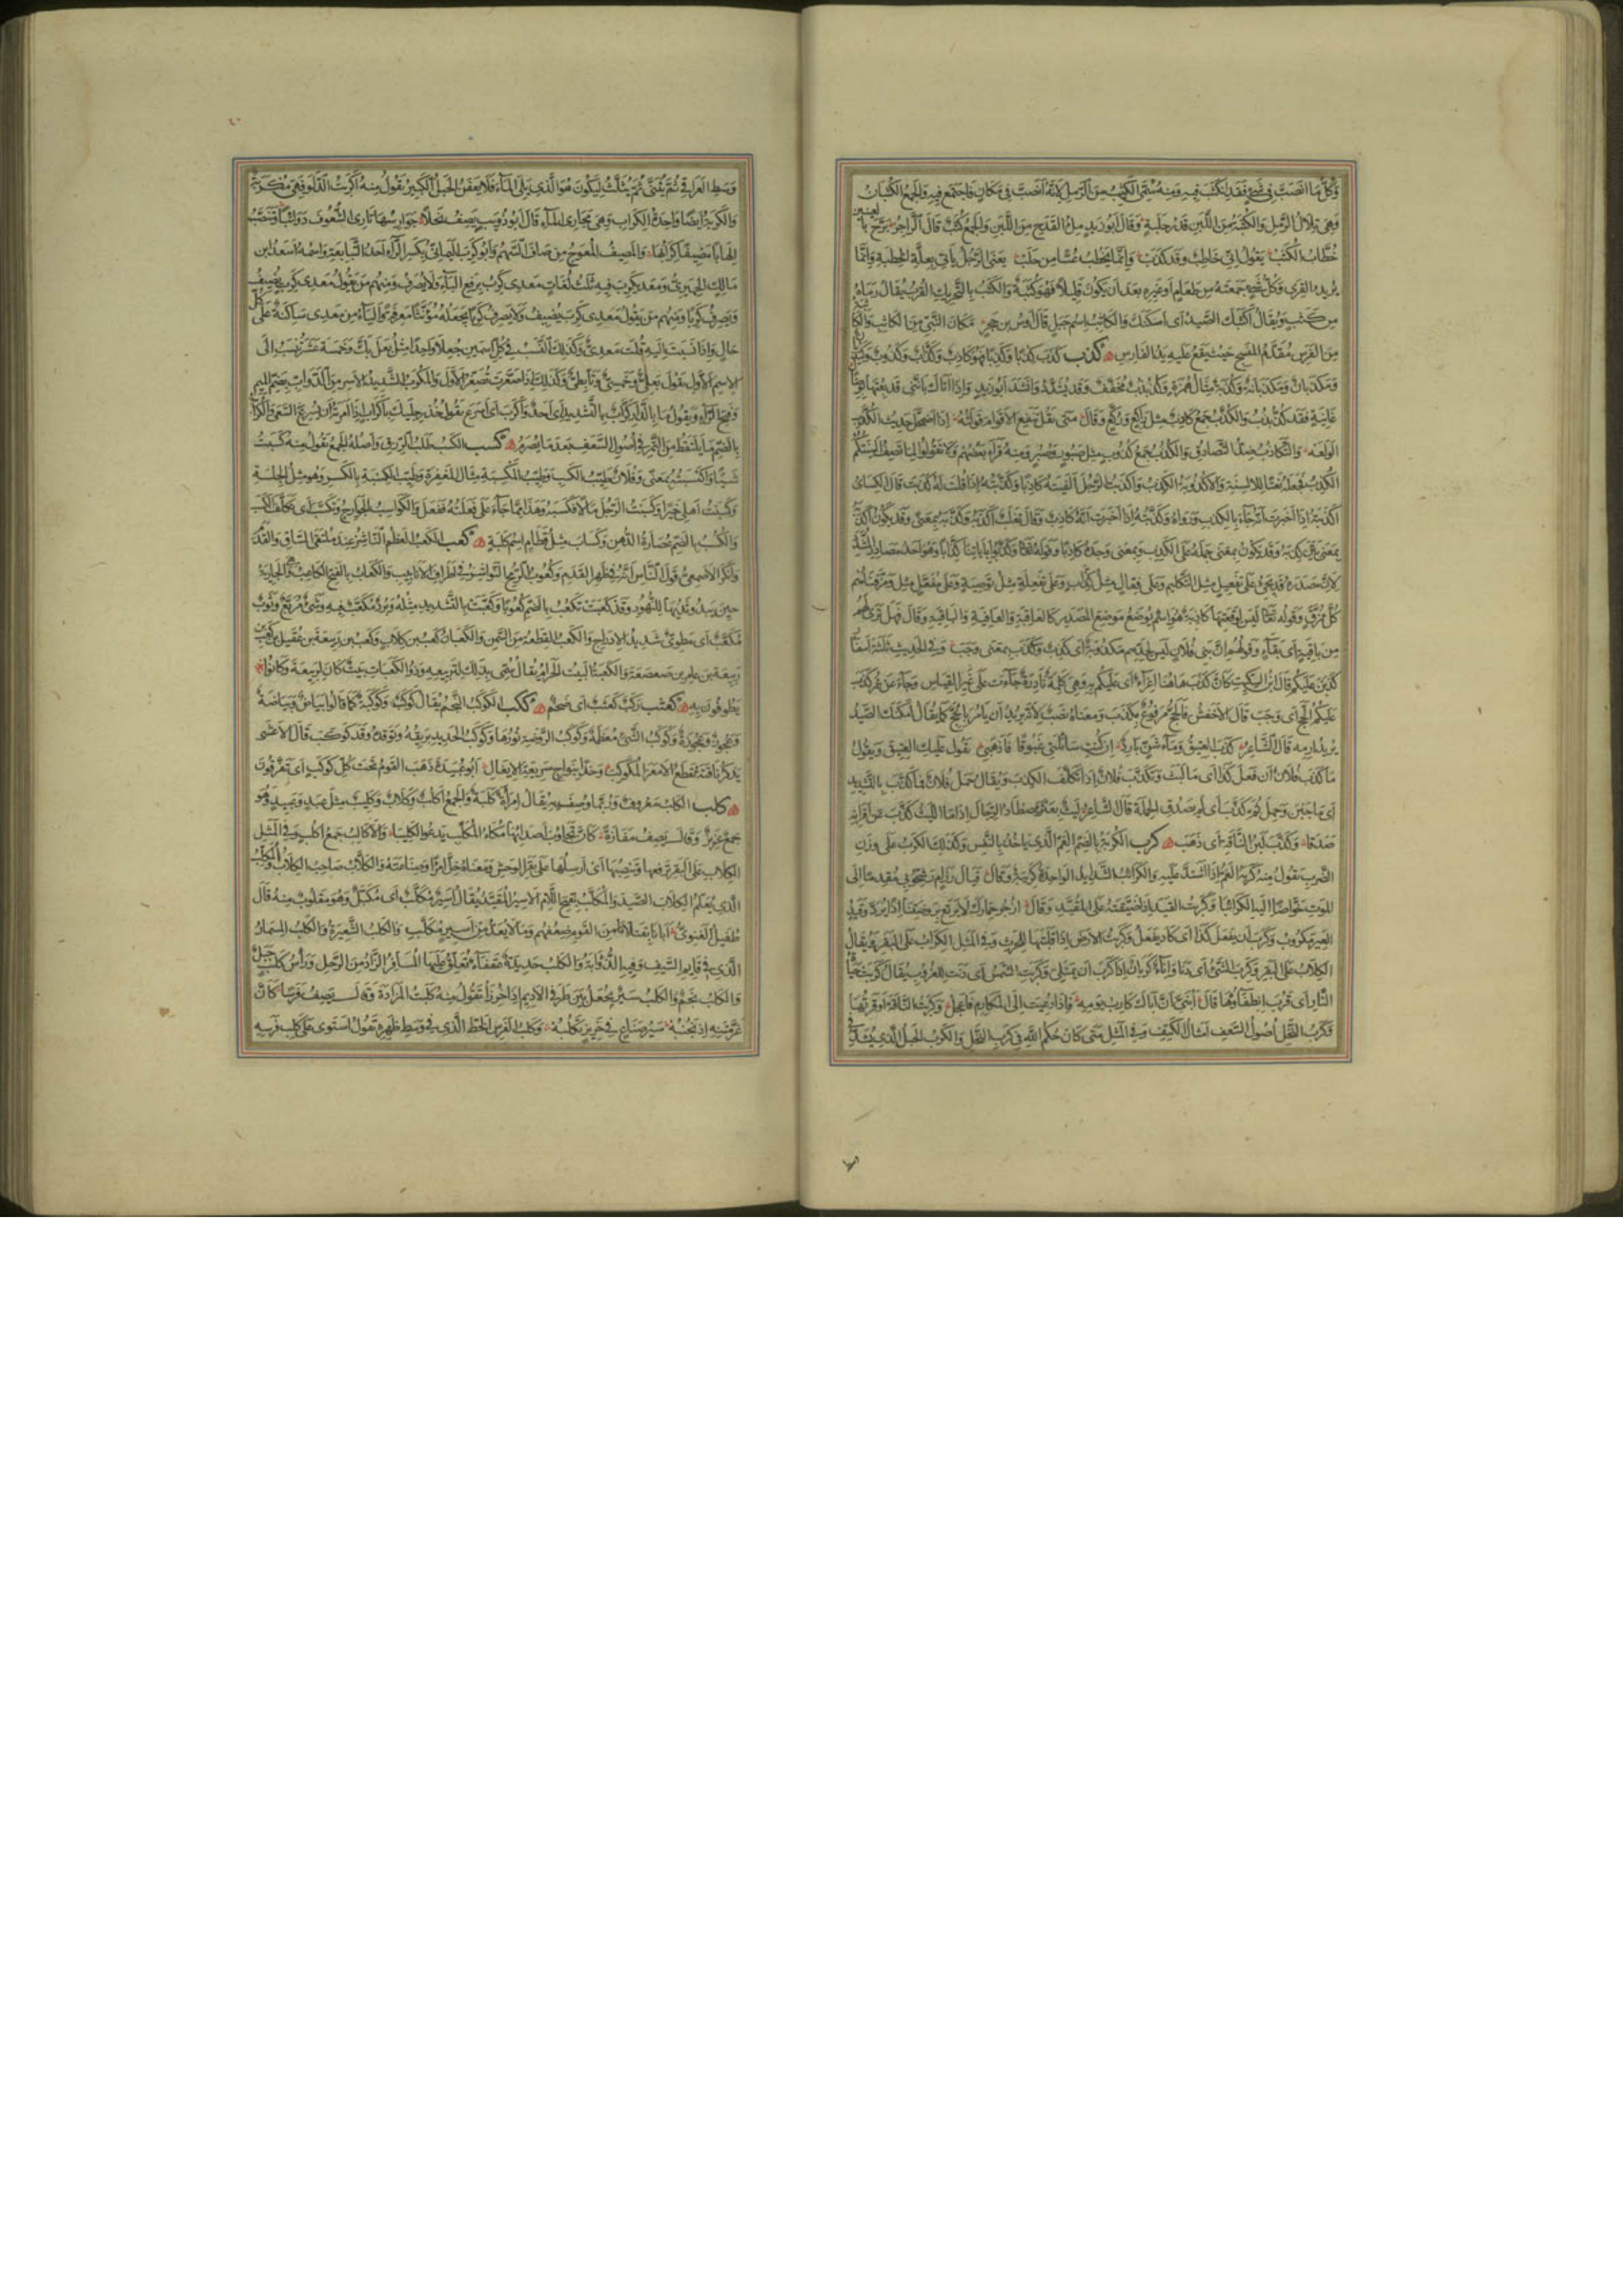 وَكُلُّ مَا انْصَبَّ فِي شَيْءٍ فَقَدِ انْكَثَبَ فِيهِ وَمِنْهُ سُمِّيَ الْكَثِيبُ مِنَ الرَّمْلِ لِأَنَّهُ انْصَبَّ فِي مَكَانٍ فَاجْتَمَعَ فِيهِ وَالْجَمْعُ الْكُثْبَانُ
وَهِيَ تِلَالُ الرَّمْلِ وَالْكُثْبَةُ مِنَ اللَّبَنِ قَدْرُ حَلْبَةٍ وَقَالَ أَبُو زَيْدٍ مِلْءُ الْقَدَحِ مِنَ اللَّبَنِ وَالْجَمْعُ كُثَبٌ قَالَ الرَّاجِزُ بَرَّحَ بِالْعَيْنَيْنِ
خُطَّابُ الْكُثَبْ يَقُولُ إِنِّي خَاطِبٌ وَقَدْ كَذَبْ وَإِنَّمَا يَخْطُبُ عُسًّا مِنْ حَلَبْ يَعْنِي الرَّجُلَ يَأْتِي بِعِلَّةِ الْخِطْبَةِ وَإِنَّمَا
يُرِيدُ الْقِرَى وَكُلُّ شَيْءٍ جَمَعْتَهُ مِنْ طَعَامٍ أَوْ غَيْرِهِ بَعْدَ أَنْ يَكُونَ قَلِيلًا فَهُوَ كُثْبَةٌ وَالْكَثَبُ بِالتَّحْرِيكِ الْقُرْبُ يُقَالُ رَمَاهُ
مِنْ كَثَبٍ وَيُقَالُ أَكْثَبَكَ الصَّيْدُ أَيْ أَمْكَنَكَ وَالْكَاثِبُ اسْمُ جَبَلٍ قَالَ أَوْسُ بْنُ حَجَرٍ مَكَانَ النَّبِيِّ مِنَ الْكَاثِبِ وَالْكَاثِبَةُ
مِنَ الْفَرَسِ مُقَدَّمُ الْمَنْسِجِ حَيْثُ يَقَعُ عَلَيْهِ يَدُ الْفَارِسِ كذب كَذَبَ كِذْبًا وَكَذِبًا فَهُوَ كَاذِبٌ وَكَذَّابٌ وَكَذُوبٌ وَكَيْذُبَانٌ
وَمَكْذَبَانٌ وَمَكْذَبَانَةٌ وَكُذَبَةٌ مِثَالُ هُمَزَةٍ وَكُذُبْذُبٌ مُخَفَّفٌ وَقَدْ يُشَدَّدُ وَأَنْشَدَ أَبُو زَيْدٍ وَإِذَا أَتَاكَ بِأَنَّنِي قَدْ بِعْتُهَا بِوِصَالِ
غَانِيَةٍ فَقُلْ كُذُّبْذُبُ وَالْكُذَّبُ جَمْعُ كَاذِبٍ مِثْلُ رَاكِعٍ وَرُكَّعٍ وَقَالَ مَتَى يَقُلْ تَنْفَعِ الْأَقْوَامَ قَوْلَتُهُ إِذَا اضْمَحَلَّ حَدِيثُ الْكُذَّبِ
الْوَلَعَهْ وَالتَّكَاذُبُ ضِدُّ التَّصَادُقِ وَالْكُذُبُ جَمْعُ كَذُوبٍ مِثْلُ صَبُورٍ وَصُبُرٍ وَمِنْهُ قَرَأَ بَعْضُهُمْ وَلَا تَقُولُوا لِمَا تَصِفُ أَلْسِنَتُكُمُ
الْكُذُبُ فَجَعَلَهُ نَعْتًا لِلْأَلْسِنَةِ وَالْأُكْذُوبَةُ الْكَذِبُ وَأَكْذَبْتُ الرَّجُلَ أَلْفَيْتُهُ كَاذِبًا وَكَذَّبْتُهُ إِذَا قُلْتَ لَهُ كَذَبْتَ قَالَ الْكِسَائِيُّ
أَكْذَبْتُهُ إِذَا أَخْبَرْتَ أَنَّهُ جَاءَ بِالْكَذِبِ وَرَوَاهُ وَكَذَّبْتُهُ إِذَا أَخْبَرْتَ أَنَّهُ كَاذِبٌ وَقَالَ ثَعْلَبٌ أَكْذَبَهُ وَكَذَّبَهُ بِمَعْنًى وَقَدْ يَكُونُ أَكْذَبَهُ
بِمَعْنَى بَيَّنَ كَذِبَهُ وَقَدْ يَكُونُ بِمَعْنَى حَمَلَهُ عَلَى الْكَذِبِ وَبِمَعْنَى وَجَدَهُ كَاذِبًا وَقَوْلُهُ تَعَالَى وَكَذَّبُوا بِآيَاتِنَا كِذَّابًا وَهُوَ أَحَدُ مَصَادِرِ الْمُشَدَّدِ
لِأَنَّ مَصْدَرَهُ قَدْ يَجِيءُ عَلَى تَفْعِيلٍ مِثْلِ التَّكْلِيمِ وَعَلَى فِعَّالٍ مِثْلُ كِذَّابٍ وَعَلَى تَفْعِلَةٍ مِثْلُ تَوْصِيَةٍ وَعَلَى مُفَعَّلٍ مِثْلُ وَمَزَّقْنَاهُمْ
كُلَّ مُمَزَّقٍ وَقَوْلُهُ تَعَالَى لَيْسَ لِوَقْعَتِهَا كَاذِبَةٌ هُوَ اسْمٌ يُوضَعُ مَوْضِعَ الْمَصْدَرِ كَالْعَاقِبَةِ وَالْعَافِيَةِ وَالْبَاقِيَةِ وَقَالَ فَهَلْ تَرَى لَهُمْ
مِنْ بَاقِيَةٍ أَيْ بَقَاءٍ وَقَوْلُهُمْ إِنَّ بَنِي فُلَانٍ لَيْسَ لِحَدِّهِمْ مَكْذُوبَةٌ أَيْ كَذِبٌ وَكَذَبَ بِمَعْنَى وَجَبَ وَفِي الْحَدِيثِ ثَلَاثَةُ أَسْفَارٍ
كَذَبْنَ عَلَيْكُمْ قَالَ ابْنُ السِّكِّيتِ كَأَنَّ كَذَبَ هَاهُنَا إِغْرَاءٌ أَيْ عَلَيْكُمْ بِهِ وَهِيَ كَلِمَةٌ نَادِرَةٌ جَاءَتْ عَلَى غَيْرِ الْقِيَاسِ وَجَاءَ عَنْ عُمَرَ كَذَبَ
عَلَيْكُمُ الْحَجُّ أَيْ وَجَبَ قَالَ الْأَخْفَشُ فَالْحَجُّ مَرْفُوعٌ بِكَذَبَ وَمَعْنَاهُ نَصْبٌ لِأَنَّهُ يُرِيدُ أَنْ يَأْمُرَ بِالْحَجِّ كَمَا يُقَالُ أَمْكَنَكَ الصَّيْدُ
يُرِيدُ ارْمِهِ قَالَ الشَّاعِرُ كَذَبَ الْعَتِيقُ وَمَاءُ شَنٍّ بَارِدٌ إِنْ كُنْتِ سَائِلَتِي غَبُوقًا فَاذْهَبِي تَقُولُ عَلَيْكَ الْعَتِيقَ وَيَقُولُ
مَا كَذَّبَ فُلَانٌ أَنْ فَعَلَ كَذَا أَيْ مَا لَبِثَ وَتَكَذَّبَ فُلَانٌ إِذَا تَكَلَّفَ الْكَذِبَ وَيُقَالُ حَمَلَ فُلَانٌ فَمَا كَذَّبَ بِالتَّشْدِيدِ
أَيْ مَا جَبُنَ وَحَمَلَ ثُمَّ كَذَّبَ أَيْ لَمْ يَصْدُقِ الْحَمْلَةَ قَالَ الشَّاعِرُ لَيْثٌ بِعَثَّرَ يَصْطَادُ الرِّجَالَ إِذَا مَا اللَّيْثُ كَذَّبَ عَنْ أَقْرَانِهِ
صَدَقَا وَكَذَّبَ لَبَنُ النَّاقَةِ أَيْ ذَهَبَ كرب الْكُرْبَةُ بِالضَّمِّ الْغَمُّ الَّذِي يَأْخُذُ بِالنَّفْسِ وَكَذَلِكَ الْكَرْبُ عَلَى وَزْنِ
الضَّرْبِ تَقُولُ مِنْهُ كَرَبَهُ الْغَمُّ إِذَا اشْتَدَّ عَلَيْهِ وَالْكَرَائِبُ الشَّدَائِدُ الْوَاحِدَةُ كَرِيبَةٌ وَقَالَ فَيَالَ رِزَامٍ رَشِّحُوا بِي مُقَدِّمًا إِلَى
الْمَوْتِ خَوَّاضًا إِلَيْهِ الْكَرَائِبَا وَكَرَبْتُ الْقَيْدَ إِذَا ضَيَّقْتَهُ عَلَى الْمُقَيَّدِ وَقَالَ ازْجُرْ حِمَارَكَ لَا يَرْتَعْ بِرَوْضَتِنَا إِذًا يُرَدُّ وَقَيْدُ
الْعَيْرِ مَكْرُوبُ وَكَرَبَ أَنْ يَفْعَلَ كَذَا أَيْ كَادَ يَفْعَلُ وَكَرَبْتُ الْأَرْضَ إِذَا قَلَبْتَهَا لِلْحَرْثِ وَفِي الْمَثَلِ الْكِرَابُ عَلَى الْبَقَرِ وَيُقَالُ
الْكِلَابُ عَلَى الْبَقَرِ وَكَرَبَ الشَّيْءُ أَيْ دَنَا وَإِنَاءٌ كَرْبَانُ إِذَا كَرَبَ أَنْ يَمْتَلِئَ وَكَرَبَتِ الشَّمْسُ أَيْ دَنَتْ لِلْغُرُوبِ يُقَالُ كَرَبَتْ حَيَاةُ
النَّارِ أَيْ قَرُبَ انْطِفَاؤُهَا قَالَ أَبُنَيَّ إِنَّ أَبَاكَ كَارِبُ يَوْمِهِ فَإِذَا دُعِيتَ إِلَى الْمَكَارِمِ فَاعْجَلِ وَكَرَبْتُ النَّاقَةَ أَوْقَرْتُهَا
وَكَرَبُ النَّخْلِ أُصُولُ السَّعَفِ أَمْثَالُ الْكَتِفِ وَفِي الْمَثَلِ مَتَى كَانَ حُكْمُ اللَّهِ فِي كَرَبِ النَّخْلِ وَالْكَرَبُ الْحَبْلُ الَّذِي يُشَدُّ فِي
وَسَطِ الْعَرَاقِي ثُمَّ يُثَنَّى ثُمَّ يُثَلَّثُ لِيَكُونَ هُوَ الَّذِي يَلِي الْمَاءَ فَلَا يَعْفَنُ الْحَبْلُ الْكَبِيرُ تَقُولُ مِنْهُ أَكْرَبْتُ الدَّلْوَ فَهِيَ مُكْرَبَةٌ
وَالْكَرَبَةُ أَيْضًا وَاحِدَةُ الْكِرَابِ وَهِيَ مَجَارِي الْمَاءِ قَالَ أَبُو ذُؤَيْبٍ يَصِفُ نَحْلًا جَوَارِسُهَا تَأْرِي الشُّعُوفَ دَوَائِبًا وَتَنْصَبُّ
إِلْهَابًا مَصِيفًا كِرَابُهَا وَالْمَصِيفُ الْمُعْوَجُّ مِنْ صَافَ السَّهْمُ وَأَبُو كَرِبٍ الْيَمَانِيُّ بِكَسْرِ الرَّاءِ أَحَدُ التَّبَابِعَةِ وَاسْمُهُ أَسْعَدُ بْنُ
مَالِكٍ الْحِمْيَرِيُّ وَمَعْدِيكَرِبَ فِيهِ ثَلَاثُ لُغَاتٍ مَعْدِي كَرِبُ بِرَفْعِ الْبَاءِ وَلَا يُصْرَفُ وَمِنْهُمْ مَنْ يَقُولُ مَعْدِي كَرِبٍ يُضِيفُ
وَيَصْرِفُ كَرِبًا وَمِنْهُمْ مَنْ يَقُولُ مَعْدِي كَرِبَ يُضِيفُ وَلَا يَصْرِفُ كَرِبًا يَجْعَلُهُ مُؤَنَّثًا مَعْرِفَةً وَالْيَاءُ مِنْ مَعْدِي سَاكِنَةٌ عَلَى كُلِّ
حَالٍ وَإِذَا نَسَبْتَ إِلَيْهِ قُلْتَ مَعْدِيٌّ وَكَذَلِكَ النَّسَبُ فِي كُلِّ اسْمَيْنِ جُعِلَا وَاحِدًا مِثْلُ بَعْلَبَكَّ وَخَمْسَةَ عَشَرَ تَنْسِبُ إِلَى
الِاسْمِ الْأَوَّلِ تَقُولُ بَعْلِيٌّ وَخَمْسِيٌّ وَتَأَبَّطِيٌّ وَكَذَلِكَ إِذَا صَغَّرْتَ تُصَغِّرُ الْأَوَّلَ وَالْمُكْرَبُ الشَّدِيدُ الْأَسْرِ مِنَ الدَّوَابِّ بِضَمِّ الْمِيمِ
وَفَتْحِ الرَّاءِ وَيَقُولُ مَا بِالدَّارِ كَرَّابٌ بِالتَّشْدِيدِ أَيْ أَحَدٌ وَأَكْرَبَ أَيْ أَسْرَعَ تَقُولُ خُذْ رِجْلَيْكَ بِأَكْرَابٍ إِذَا أَمَرْتَهُ أَنْ يُسْرِعَ السَّعْيَ وَالْكُرَابَةُ
بِالضَّمِّ مَا يُلْتَقَطُ مِنَ التَّمْرِ فِي أُصُولِ السَّعَفِ بَعْدَ مَا يُصْرَمُ كسب الْكَسْبُ طَلَبُ الرِّزْقِ وَأَصْلُهُ الْجَمْعُ تَقُولُ مِنْهُ كَسَبْتُ
شَيْئًا وَاكْتَسَبْتُهُ بِمَعْنًى وَفُلَانٌ طَيِّبُ الْكَسْبِ وَطَيِّبُ الْمَكْسِبَةِ مِثَالُ الْمَغْفِرَةِ وَطَيِّبُ الْكِسْبَةِ بِالْكَسْرِ وَهُوَ مِثْلُ الْجِلْسَةِ
وَكَسَبْتُ أَهْلِي خَيْرًا وَكَسَبْتُ الرَّجُلَ مَالًا فَكَسَبَهُ وَهَذَا مِمَّا جَاءَ عَلَى فَعَلْتُهُ فَفَعَلَ وَالْكَوَاسِبُ الْجَوَارِحُ وَتَكَسَّبَ أَيْ تَكَلَّفَ الْكَسْبَ
وَالْكُسْبُ بِالضَّمِّ عُصَارَةُ الدُّهْنِ وَكَسَابِ مِثْلُ قَطَامِ اسْمُ كَلْبَةٍ كعب الْكَعْبُ الْعَظْمُ النَّاشِزُ عِنْدَ مُلْتَقَى السَّاقِ وَالْقَدَمِ
وَأَنْكَرَ الْأَصْمَعِيُّ قَوْلَ النَّاسِ إِنَّهُ فِي ظَهْرِ الْقَدَمِ وَكُعُوبُ الرُّمْحِ النَّوَاشِزُ فِي أَطْرَافِ الْأَنَابِيبِ وَالْكَعَابُ بِالْفَتْحِ الْكَاعِبُ وَهِيَ الْجَارِيَةُ
حِينَ يَبْدُو ثَدْيُهَا لِلنُّهُودِ وَقَدْ كَعَبَتْ تَكْعُبُ بِالضَّمِّ كُعُوبًا وَكَعَّبَتْ بِالتَّشْدِيدِ مِثْلُهُ وَبُرْدٌ مُكَعَّبٌ فِيهِ وَشْيٌ مُرَبَّعٌ وَثَوْبٌ
مُكَعَّبٌ أَيْ مَطْوِيٌّ شَدِيدُ الْإِدْرَاجِ وَالْكَعْبُ الْقِطْعَةُ مِنَ السَّمْنِ وَالْكَعْبَانِ كَعْبُ بْنُ كِلَابٍ وَكَعْبُ بْنُ رَبِيعَةَ بْنِ عُقَيْلِ بْنِ كَعْبِ بْنِ
رَبِيعَةَ بْنِ عَامِرِ بْنِ صَعْصَعَةَ وَالْكَعْبَةُ الْبَيْتُ الْحَرَامُ يُقَالُ سُمِّيَ بِذَلِكَ لِتَرَبُّعِهِ وَذُو الْكَعَبَاتِ بَيْتٌ كَانَ لِرَبِيعَةَ وَكَانُوا
يَطُوفُونَ بِهِ كعثب رَكَبٌ كَعْثَبٌ أَيْ ضَخْمٌ ككب الْكَوْكَبُ النَّجْمُ يُقَالُ كَوْكَبٌ وَكَوْكَبَةٌ كَمَا قَالُوا بَيَاضٌ وَبَيَاضَةٌ
وَعَجُوزٌ وَعَجُوزَةٌ وَكَوْكَبُ الشَّيْءِ مُعْظَمُهُ وَكَوْكَبُ الرَّوْضَةِ نَوْرُهَا وَكَوْكَبُ الْحَدِيدِ بَرِيقُهُ وَتَوَقُّدُهُ وَقَدْ كَوْكَبَ قَالَ الْأَعْشَى
يَذْكُرُ نَاقَتَهُ تَقْطَعُ الْأَمْعَزَ الْمُكَوْكِبَ وَخْدًا بِنَوَاجٍ سَرِيعَةِ الْإِيغَالِ أَبُو عُبَيْدَةَ ذَهَبَ الْقَوْمُ تَحْتَ كُلِّ كَوْكَبٍ أَيْ تَفَرَّقُوا
كلب الْكَلْبُ مَعْرُوفٌ وَرُبَّمَا وُصِفَ بِهِ يُقَالُ امْرَأَةٌ كَلْبَةٌ وَالْجَمْعُ أَكْلُبٌ وَكِلَابٌ وَكَلِيبٌ مِثْلُ عَبْدٍ وَعَبِيدٍ وَهُوَ
جَمْعٌ عَزِيزٌ وَقَالَ يَصِفُ مَفَازَةً كَأَنَّ تَجَاوُبَ أَصْدَائِهَا مُكَاءُ الْمُكَلِّبِ يَدْعُو الْكَلِيبَا وَالْأَكَالِبُ جَمْعُ أَكْلُبٍ وَفِي الْمَثَلِ
الْكِلَابُ عَلَى الْبَقَرِ تَرْفَعُهَا وَتَنْصِبُهَا أَيْ أَرْسِلْهَا عَلَى بَقَرِ الْوَحْشِ وَمَعْنَاهُ خَلِّ امْرَأً وَصِنَاعَتَهُ وَالْكَلَّابُ صَاحِبُ الْكِلَابِ وَالْمُكَلِّبُ
الَّذِي يُعَلِّمُ الْكِلَابَ الصَّيْدَ وَالْمُكَلَّبُ بِفَتْحِ اللَّامِ الْأَسِيرُ الْمُقَيَّدُ يُقَالُ أَسِيرٌ مُكَلَّبٌ أَيْ مُكَبَّلٌ وَهُوَ مَقْلُوبٌ مِنْهُ قَالَ
طُفَيْلٌ الْغَنَوِيُّ أَبَأْنَا بِقَتْلَانَا مِنَ الْقَوْمِ ضِعْفَهُمْ وَمَا لَا يُعَدُّ مِنْ أَسِيرٍ مُكَلَّبِ وَالْكَلْبُ الشَّعِيرَةُ وَالْكَلْبُ الْمِسْمَارُ
الَّذِي فِي قَائِمِ السَّيْفِ وَفِيهِ الذُّؤَابَةُ وَالْكَلْبُ حَدِيدَةٌ عَقْفَاءُ يُعَلِّقُ عَلَيْهَا الْمُسَافِرُ الزَّادَ مِنَ الرَّحْلِ وَرَأْسُ كَلْبٍ جَبَلٌ
وَالْكَلْبُ نَجْمٌ وَالْكَلْبُ سَيْرٌ يُجْعَلُ بَيْنَ طَرَفَيِ الْأَدِيمِ إِذَا خُرِزَا تَقُولُ مِنْهُ كَلَبْتُ الْمَزَادَةَ وَقَالَ يَصِفُ فَرَسًا كَأَنَّ
غَرَّ مَتْنِهِ إِذْ نَجْنُبُهْ سَيْرُ صَنَاعٍ فِي خَرِيزٍ تَكْلُبُهْ وَكَلْبُ الْفَرَسِ الْخَطُّ الَّذِي فِي وَسَطِ ظَهْرِهِ تَقُولُ اسْتَوَى عَلَى كَلْبِ فَرَسِهِ